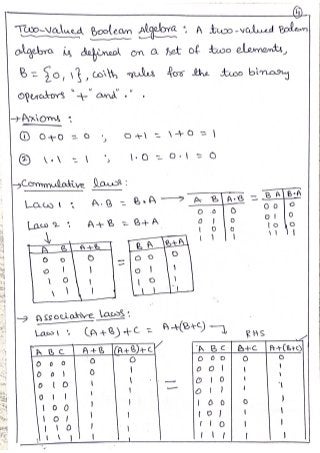 4
Two-valued Boolean Algebra : A two-valued Boolean
algebra is defined on a set of two elements,
B = {0, 1}, with rules for the two binary
operators "+" and "."
→ Axioms :
① 0+0 = 0 ; 0+1 = 1+0 = 1
② 1.1 = 1 ; 1.0 = 0.1 = 0
→ Commulative laws :
Law 1 : A.B = B.A →
A B A.B = B A B.A
0 0 0 0 0 0
0 1 0 0 1 0
1 0 0 1 0 0
1 1 1 1 1 1
Law 2 : A+B = B+A
A B A+B = B A B+A
0 0 0 0 0 0
0 1 1 0 1 1
1 0 1 1 0 1
1 1 1 1 1 1
→ Associative laws :
Law 1 : (A+B)+C = A+(B+C) → RHS
A B C A+B (A+B)+C = A B C B+C A+(B+C)
0 0 0 0 0 0 0 0 0 0
0 0 1 0 1 0 0 1 1 1
0 1 0 1 1 0 1 0 1 1
0 1 1 1 1 0 1 1 1 1
1 0 0 1 1 1 0 0 0 1
1 0 1 1 1 1 0 1 1 1
1 1 0 1 1 1 1 0 1 1
1 1 1 1 1 1 1 1 1 1